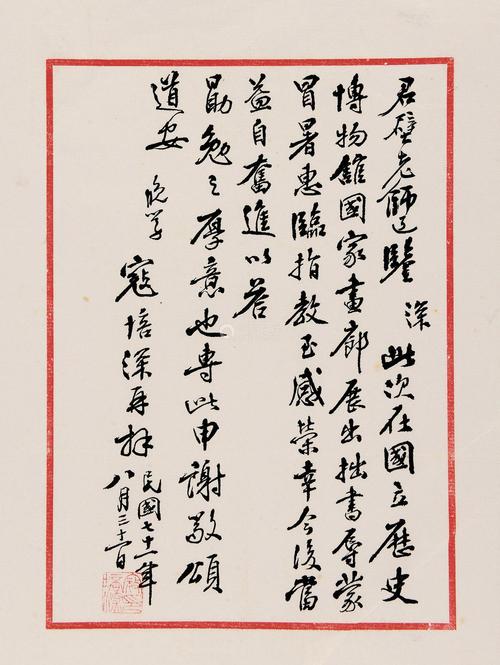 君璧老師道鑒 深此次在國立歷史
博物館國家畫廊展出拙書辱蒙
冒暑惠臨指教至感榮幸今後當
益自奮進以答
勗勉之厚意也專此申謝敬頌
道安
晚學 寇培深再拜
民國七十一年
八月三十一日